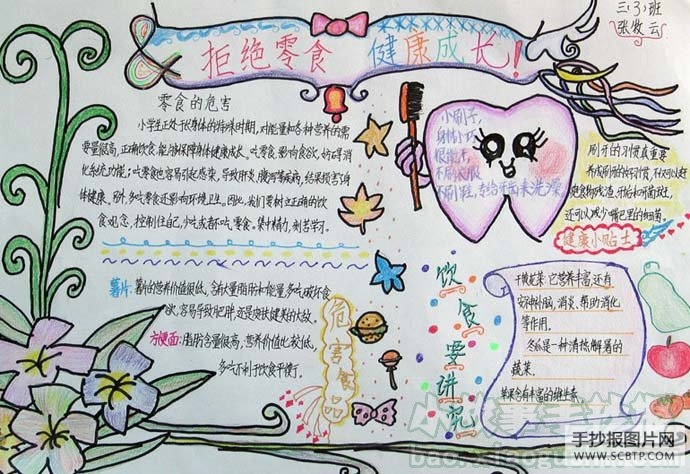 三、3班
张牧云
拒绝零食 健康成长!
零食的危害
小学生正处于长身体的特殊时期,对能量和各种营养的需
要量很高,正确饮食,能够保障身体健康成长。吃零食,影响食欲,妨碍消
化系统功能;吃零食也容易引起感染,导致肝炎,肠胃等疾病,结果损害了身
体健康。另外,多吃零食还影响环境卫生。因此,我们要树立正确的饮
食观念,控制住自己,少吃或者不吃零食。集中精力,刻苦学习。
小刷子,
身体小巧
很能干,
不刷衣服
不刷鞋,专给牙齿来洗澡
刷牙的习惯真重要
养成刷牙的好习惯,
还可以减少嘴巴里的细菌。
健康小贴士
薯片:薯片的营养价值很低,含有大量脂肪和能量,多吃破坏食
欲,容易导致肥胖,还是皮肤健美的大敌。
方便面:脂肪含量很高,营养价值比较低,
多吃不利于饮食平衡。
危害食品
饮食要讲究
它营养丰富,还有
消炎,帮助消化
等作用。
冬瓜是一种清热解暑的
蔬菜。
苹果含有丰富的维生素
手抄报图片网
WWW.SCBTP.COM